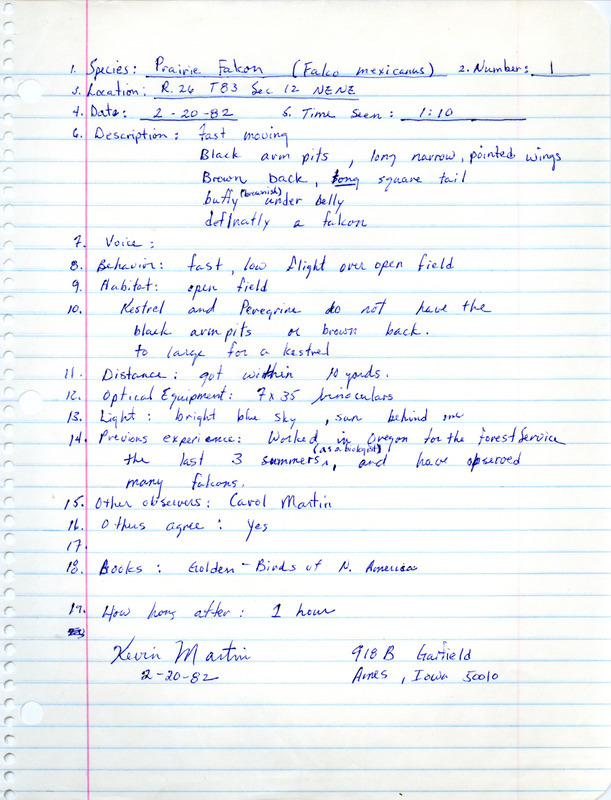 1. Species: Prairie Falkon (Falco mexicanus) 2. Number: 1
3. Location: R.26 T83 Sec 12 NENE
4. Date: 2-20-82 5. Time Seen: 1:10
6. Description: fast moving
Black arm pits, long narrow, pointed wings
Brown back, long square tail
buffy (brownish) under belly
definatly a falkon
7. Voice:
8. Behavior: fast, low flight over open field
9. Habitat: open field
10. Kestrel and Peregrine do not have the
black armpits or brown back.
to large for a kestrel
11. Distance: got within 10 yards.
12. Optical Equipment: 7x35 binoculars
13. Light: bright blue sky, sun behind me
14. Previous experience: Worked in Oregon for the Forest Service
the last 3 summers (as a biologist), and have observed
many falcons.
15. Other observers: Carol Martin
16. Others agree: Yes
17.
18. Books: Golden-Birds of N. America
19. How long after: 1 hour
Kevin Martin 918 B Garfield
2-20-82 Ames, Iowa 50010